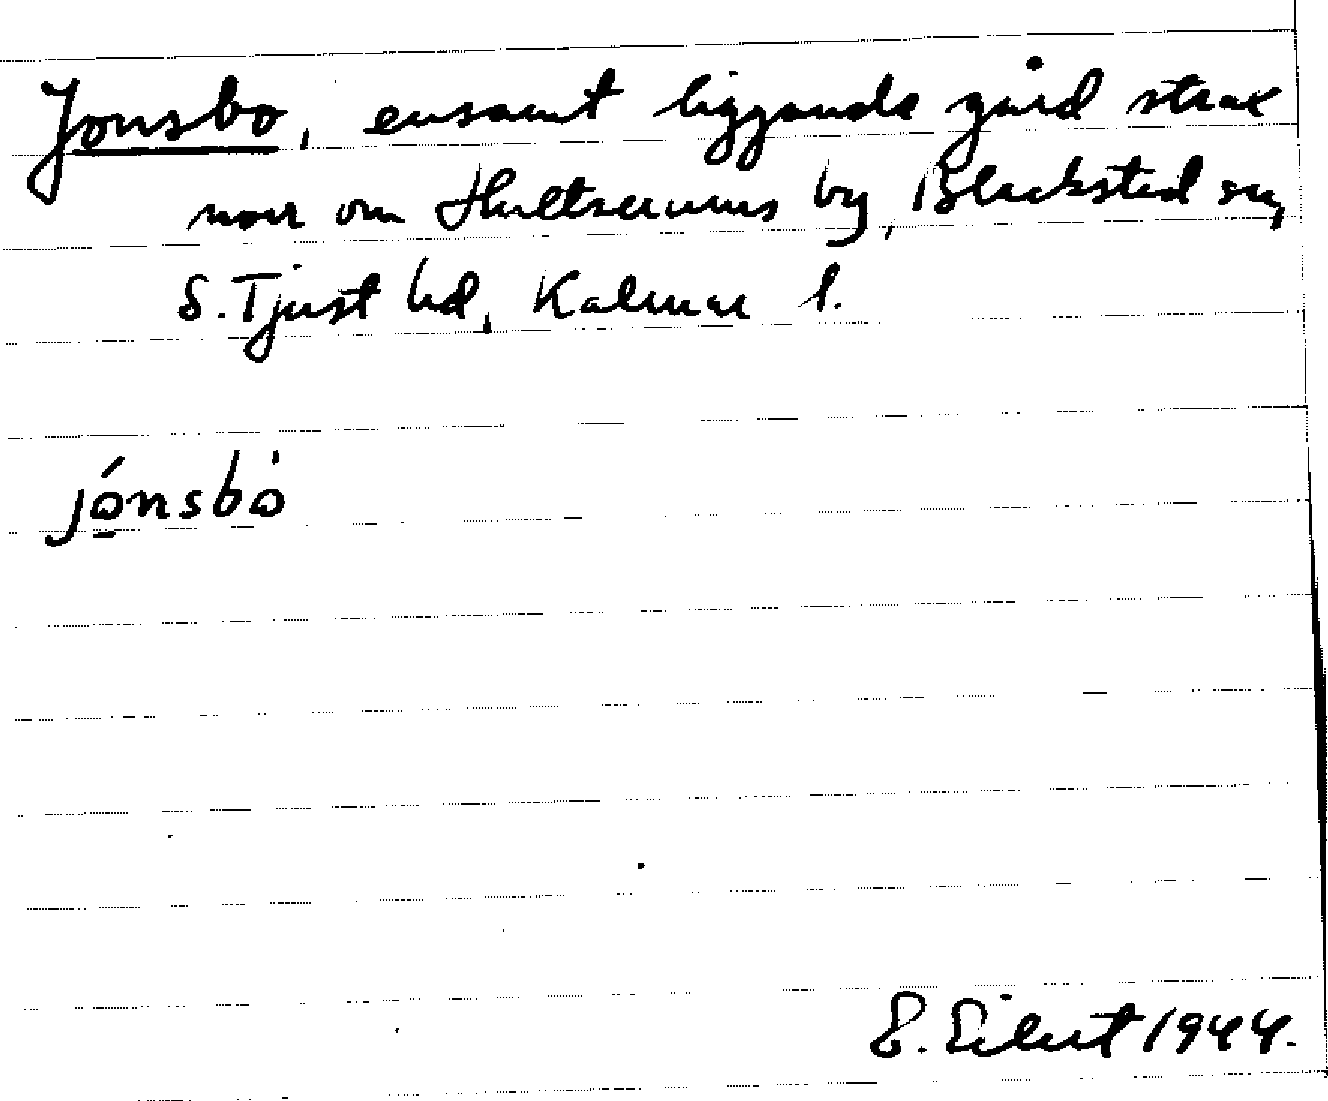 Jonsbo, ensamt liggande gård strax
norr om Hultserums by, Blackstad sn,
S. Tjust hd, Kalmar l.
jónsbò
E. Eilert 1944.